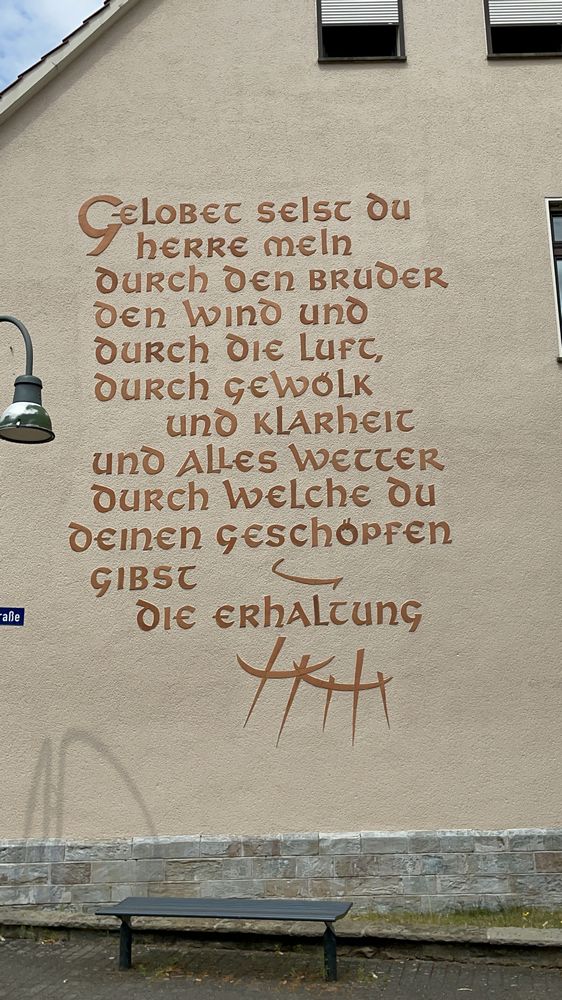 Gelobet seist du
herre mein
durch den bruder
den wind und
durch die luft,
durch gewölk
und klarheit
und alles wetter
durch welche du
deinen geschöpfen
gibst
die erhaltung
raße